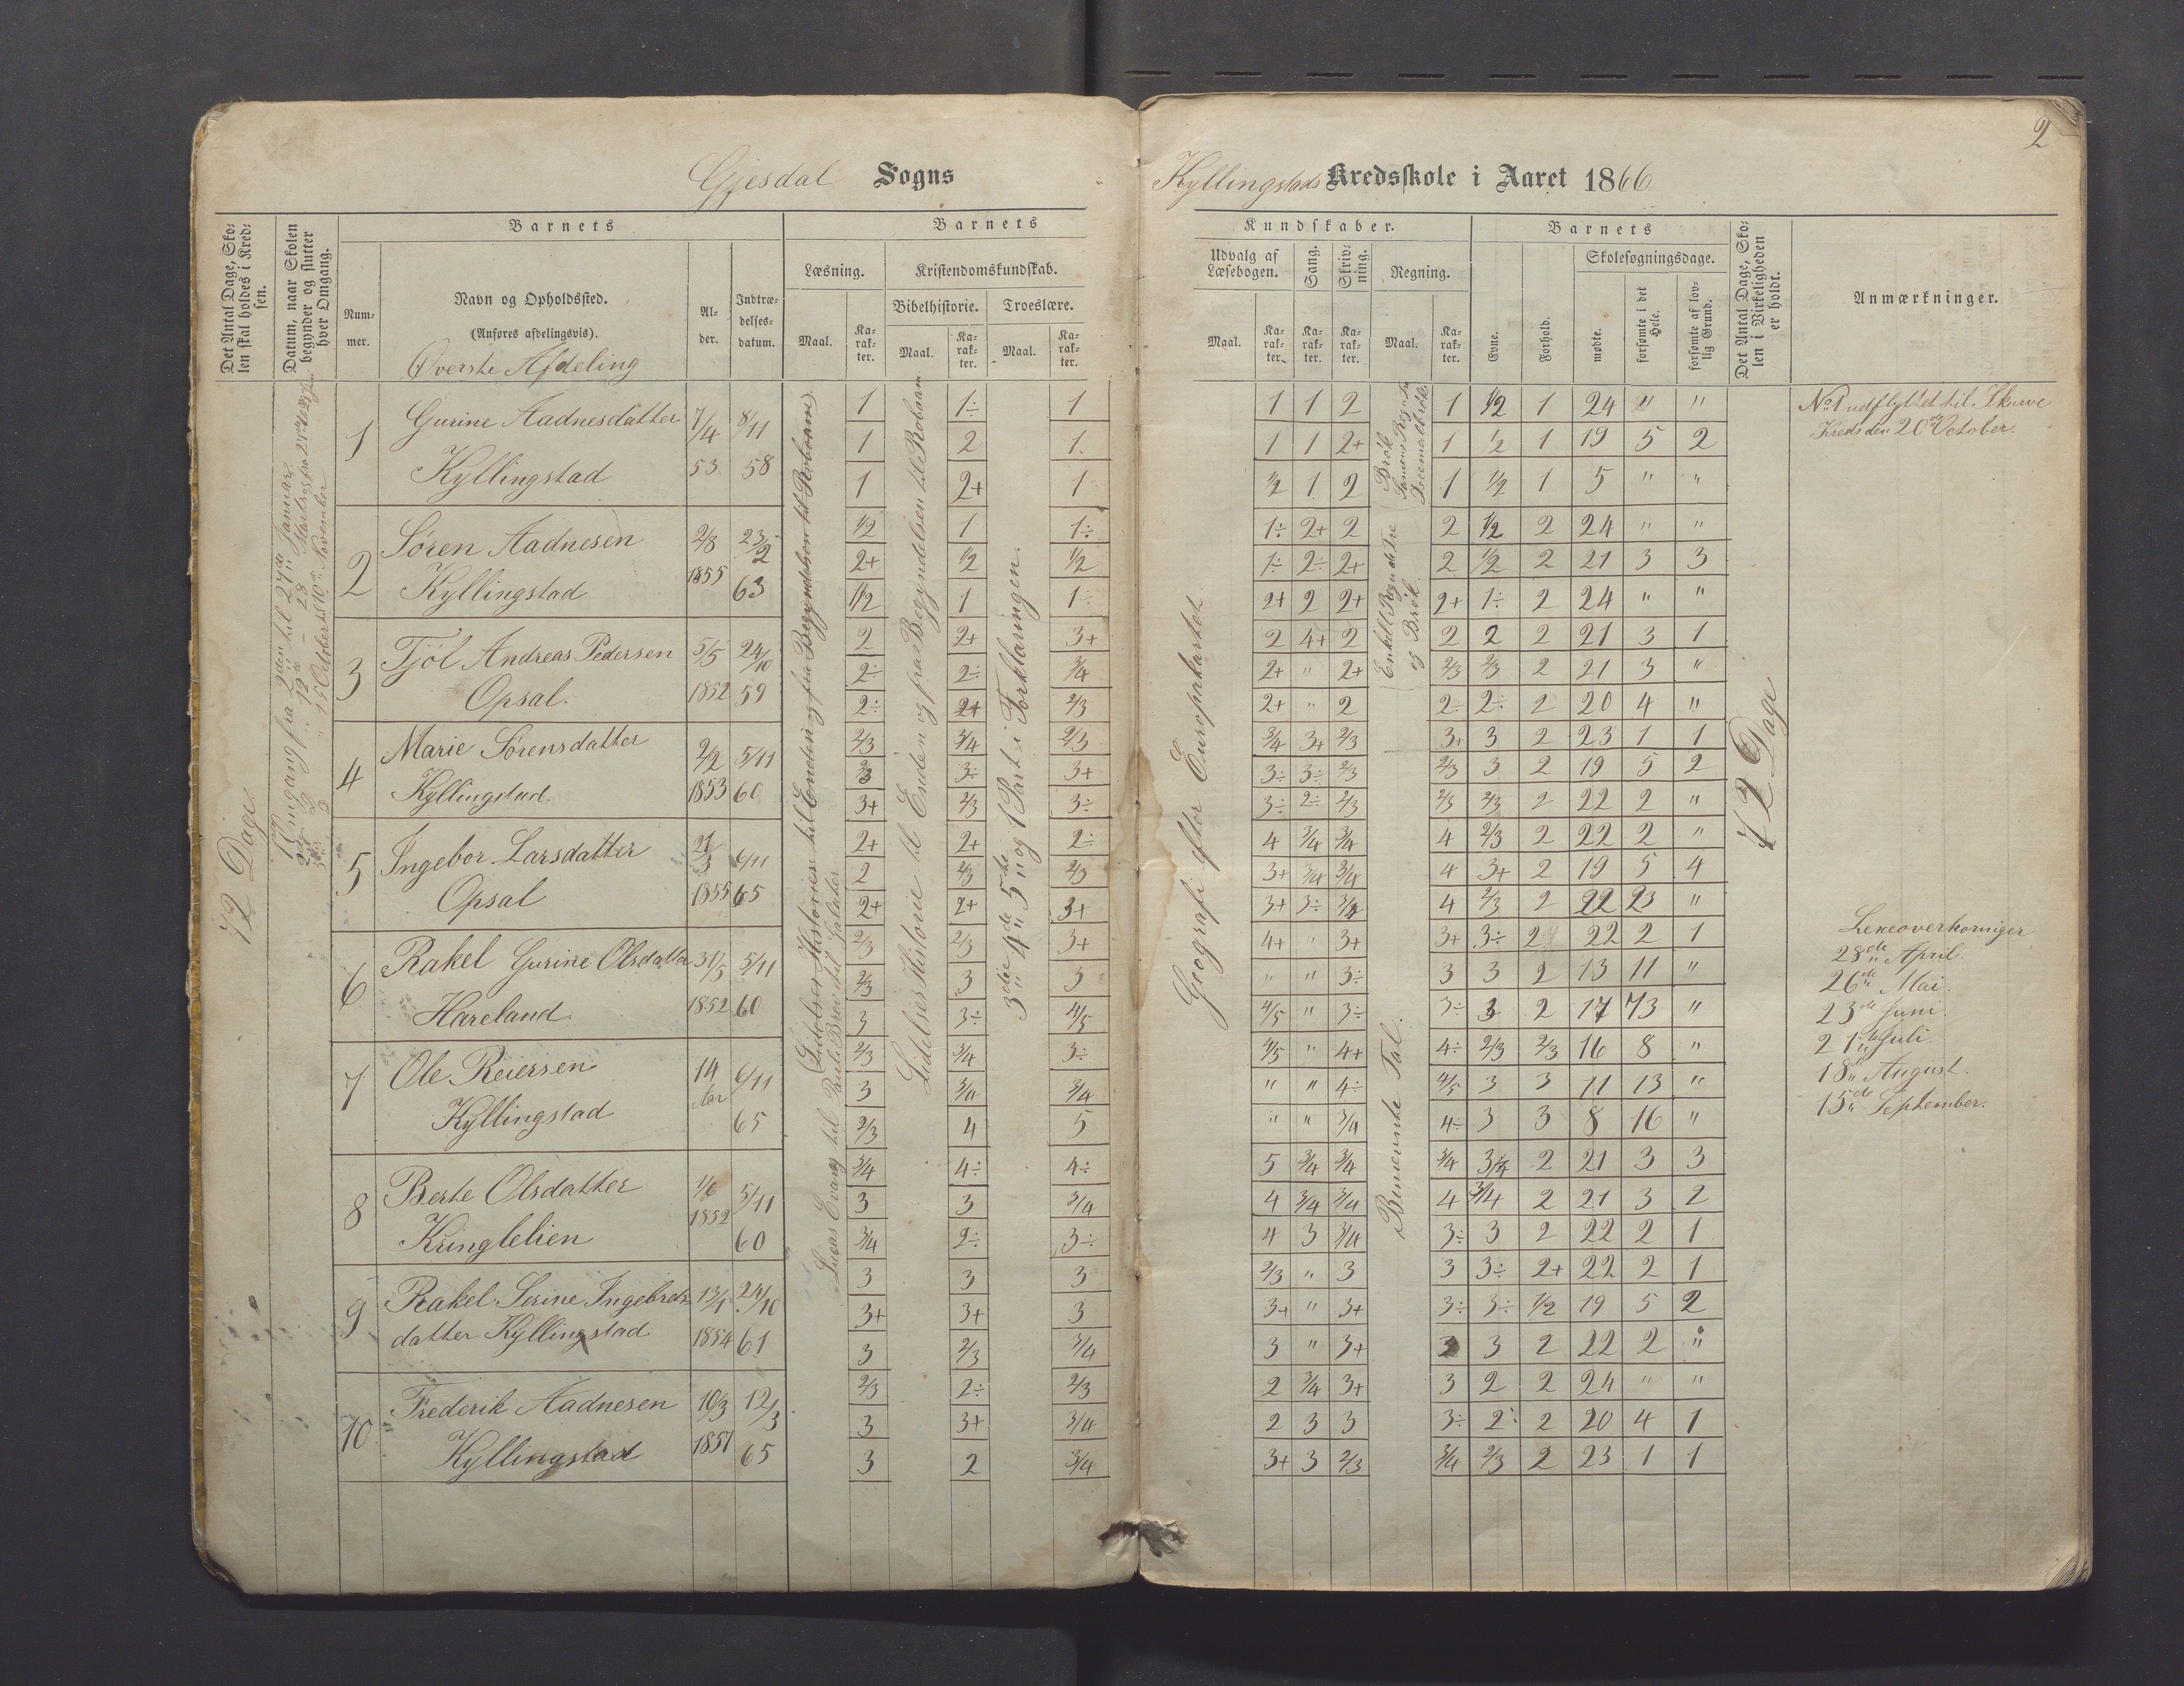 2
Gjesdal Sogns Kyllingstads Kredsskole i Aaret 1866
Det Antal Dage, Skolen skal holdes i Kredsen.
Datum, naar Skolen begynder og slutter hver Omgang.
Barnets
Nummer.
Navn og Opholdssted.
(Anføres afdelingsvis).
Øverste Afdeling
Alder.
Indtrædelsesdatum.
Barnets
Læsning.
Kristendomskundskab.
Bibelhistorie.
Troeslære.
Maal.
Karakter.
Maal.
Karakter.
Maal.
Karakter.
Kundskaber.
Udvalg af Læsebogen.
Sang.
Skrivning.
Regning.
Maal.
Karakter.
Karakter.
Karakter.
Maal.
Karakter.
Barnets
Evne.
Forhold.
Skolesøgningsdage.
mødte.
forsømte i det Hele.
forsømte af lovlig Grund.
Det Antal Dage, Skolen i Virkeligheden er holdt.
Anmærkninger.
72 Dage.
1 Gurine Aadnesdatter 7/4 8/11
Kyllingstad 53 58
2 Søren Aadnesen 2/8 23/2
Kyllingstad 1855 63
3 Tjøl Andreas Pedersen 5/5 24/10
Opsal. 1852 59
4 Marie Sørensdatter 2/2 5/11
Kyllingstad. 1853 60
5 Ingebor Larsdatter 21/3 6/11
Opsal 1855 65
6 Rakel Gurine Olsdatter 31/5 5/11
Hareland. 1852 60
7 Ole Reiersen 14 Aar 6/11
Kyllingstad 65
8 Berte Olsdatter 1/6 5/11
Kringlelien 1852 60
9 Rakel Serine Ingebrets 13/1 24/10
datter Kyllingstad 1854 61
10 Frederik Aadnesen 10/3 12/3
Kyllingstad 1851 65
Lidelses Historie til Enden og fra Begyndelsen til Roboam
3die 4de 5te og 1 Part i Forklaringen.
Geografi efter Europakartet
Benævnte Tal.
1 1÷ 1 1 1 2 1 1/2 1 24 " "
1 2 1. 1 1 2+ 1 1/2 1 19 5 2
1 2+ 1 1/2 1 2 1 1/2 1 5 " "
1/2 1 1÷ 1÷ 2+ 2 2 1/2 2 24 " "
2+ 1/2 1/2 1÷ 2÷ 2+ 2 1/2 2 21 3 3
1/2 1 1÷ 2+ 2 2+ 2+ 1÷ 2 24 " "
2 2+ 3+ 2 4+ 2 2 2 2 21 3 1
2÷ 2÷ 3/4 2+ " 2+ 2/3 2/3 2 21 3 "
2÷ 2+ 2/3 2+ " 2 2÷ 2÷ 2 20 4 "
2/3 3/4 2/3 3/4 3+ 2/3 3+ 3 2 23 1 1
2/3 3÷ 3+ 3÷ 3÷ 2/3 2/3 3 2 19 5 2
3+ 2/3 3÷ 3÷ 2÷ 2/3 2/3 2/3 2 22 2 "
2+ 2+ 2÷ 4 3/4 3/4 4 2/3 2 22 2 "
2 2/3 2/3 3+ 3/4 3/4 4 3+ 2 19 5 4
2+ 2+ 3+ 3+ 3÷ 3/4 4 2/3 2 22 "
2/3 2/3 3+ 4+ " 3+ 3+ 3÷ 2 22 2 1
2/3 3 3 " " 3÷ 3 3 2 13 11 "
3 3÷ 4/5 4/5 " 3÷ 3÷ 3 2 17 "
2/3 3/4 3÷ 4/5 " 4+ 4÷ 2/3 2/3 16 8 "
3 3/4 3/4 " " 4÷ 4/5 3 3 11 13 "
2/3 4 5 " " 3/4 4÷ 3 3 8 16 "
3/4 4÷ 4÷ 5 3/4 3/4 3/4 3/4 2 21 3 3
3 3 3/4 4 3/4 3/4 4 3/4 2 21 3 2
3/4 2÷ 3÷ 4 3 3/4 3÷ 3 2 22 2 1
3 3 3 2/3 " 3 3 3÷ 2+ 22 2 1
3+ 3+ 3 3+ " 3+ 3÷ 3÷ 1/2 19 5 2
3 2/3 3/4 3 " 3+ 3 3 2 22 2 "
2/3 2÷ 2/3 2 3/4 3+ 3 2 2 24 " "
3 3+ 3/4 2 3 3 3÷ 2÷ 2 20 4 1
3 2 3/4 3+ 3 2/3 3/4 2/3 2 23 1 1
72 Dage
No 1 udflyttet til Skurve
Kreds den 20de October.
28de April.
26de Mai.
23de Juni.
21de Juli
18de August.
15de September.